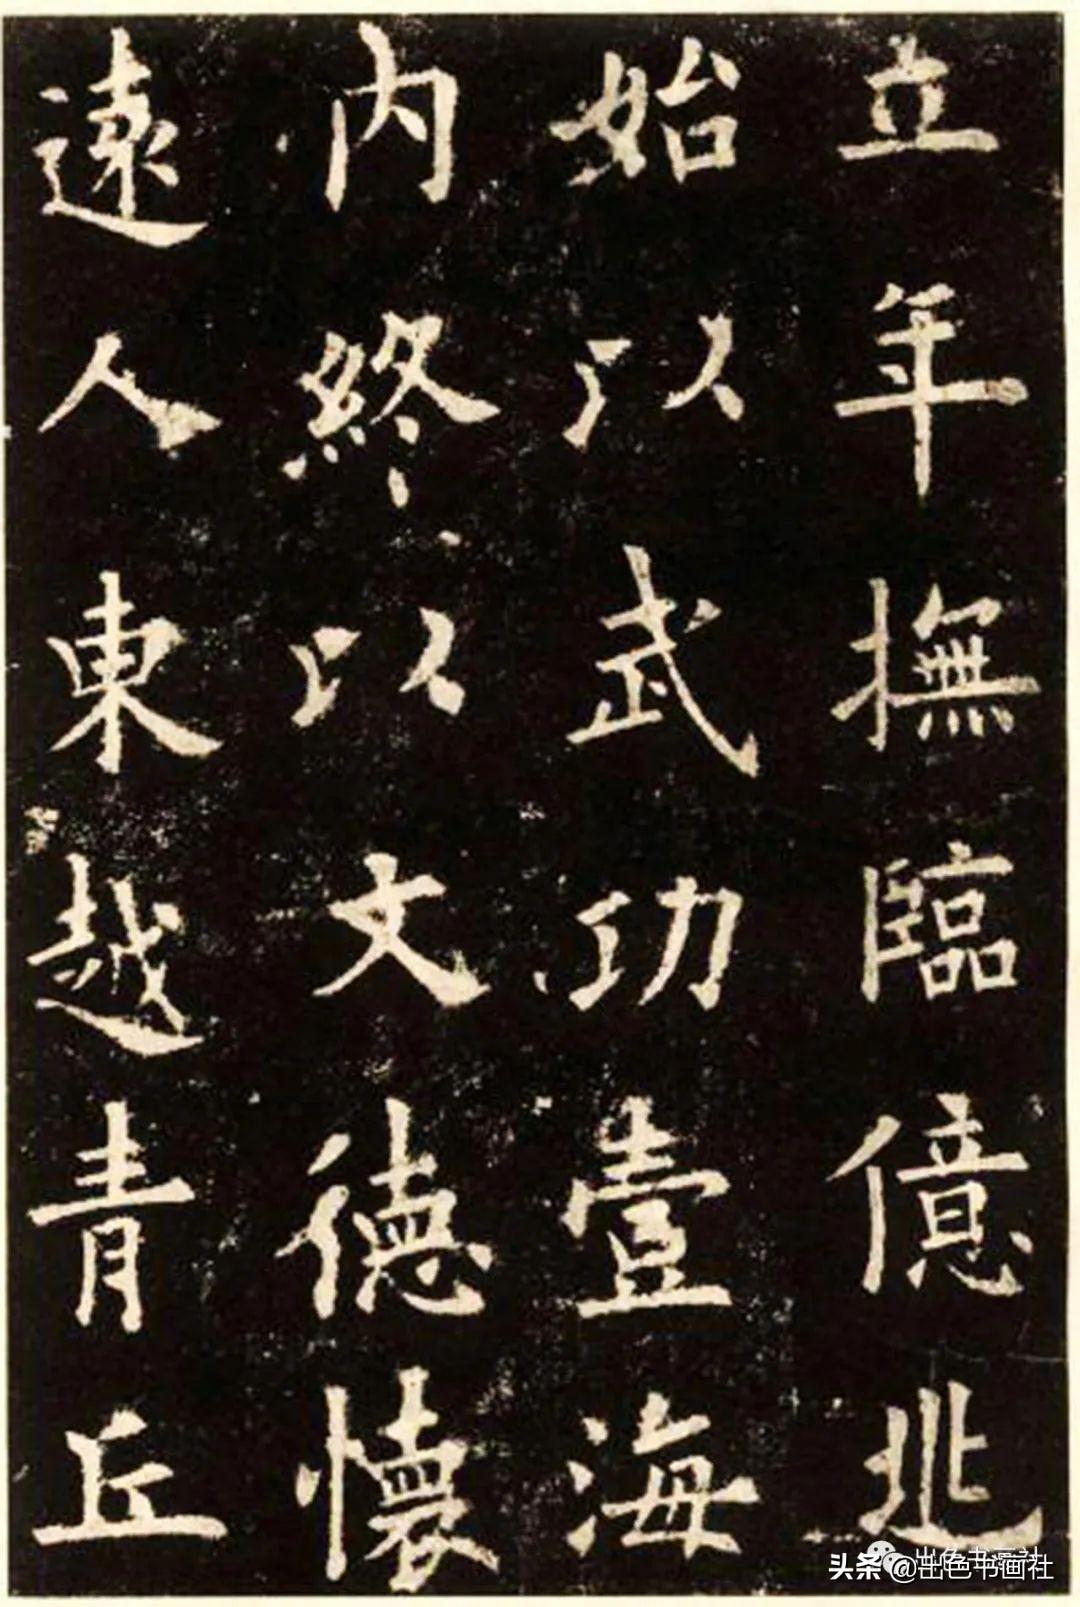 立年撫臨億兆
始以武功壹海
内終以文德懷
遠人東越青丘
出色书画社
头条@出色书画社